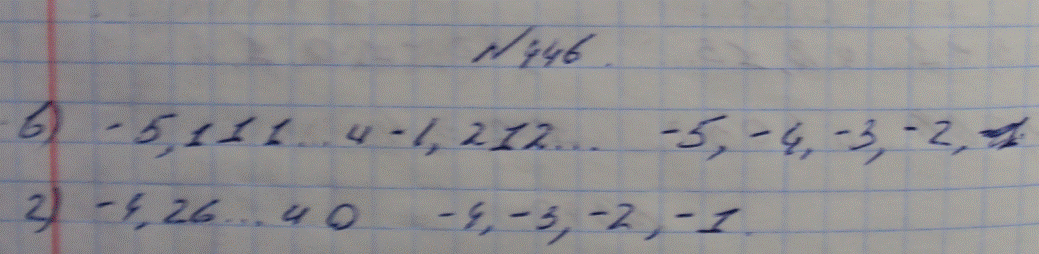 №446.
в) -5,111... и -1,212... -5, -4, -3, -2,
г) -4,26... и 0 -4, -3, -2, -1.